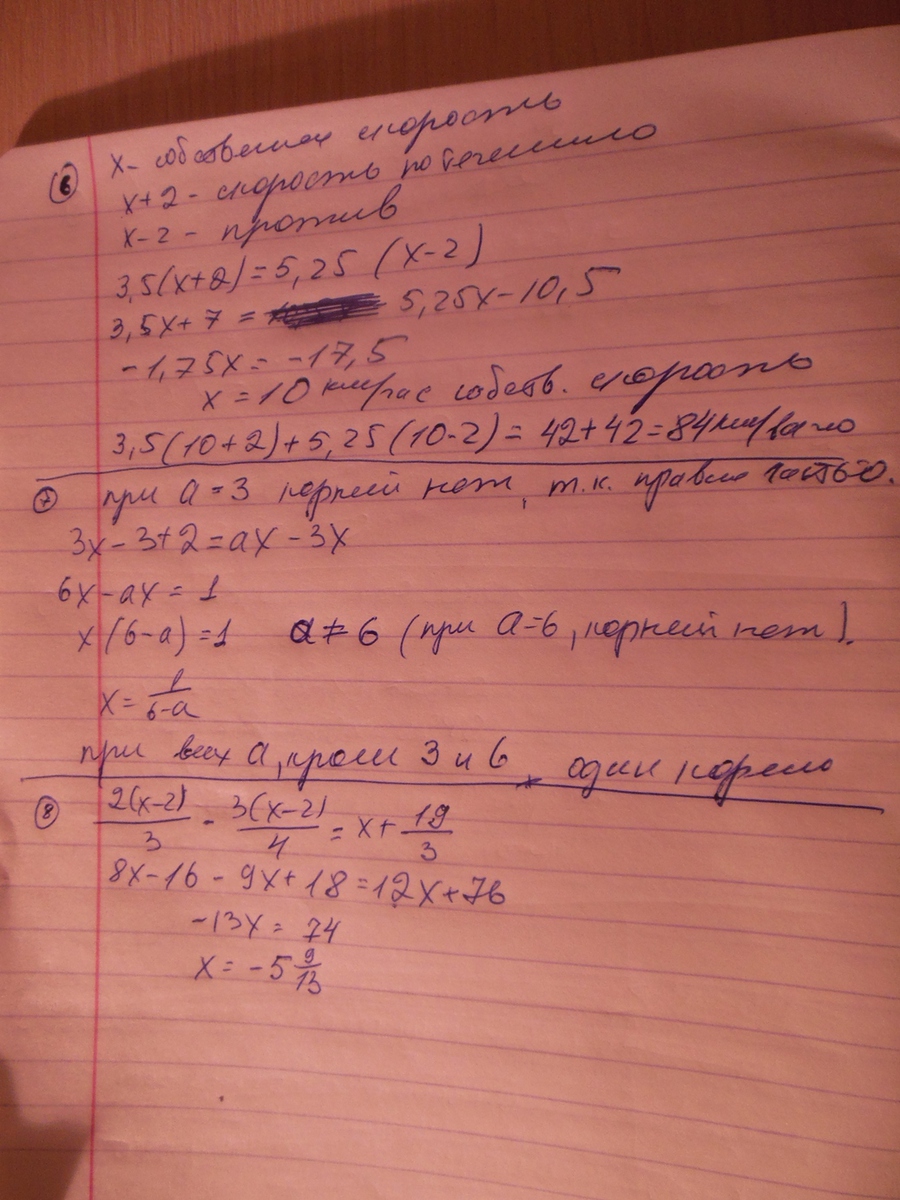 6 х - собственная скорость
х+2 - скорость по течению
х-2 - против
3,5(х+2)=5,25 (х-2)
3,5х+7 = 5,25х-10,5
-1,75х = -17,5
х = 10 км/час собств. скорость
3,5(10+2)+5,25(10-2) = 42+42=84км/
7 при а=3 корней нет, т.к. правая часть 0.
3х-3+2=ах-3х
6х-ах=1
х(6-а)=1 а≠6 (при а=6, корней нет).
х = 1/6-а
при всех а, кроме 3 и 6, один корень
8 2(х-2)/3 - 3(х-2)/4 = х+ 19/3
8х-16-9х+18=12х+76
-13х = 74
х = -5 9/13